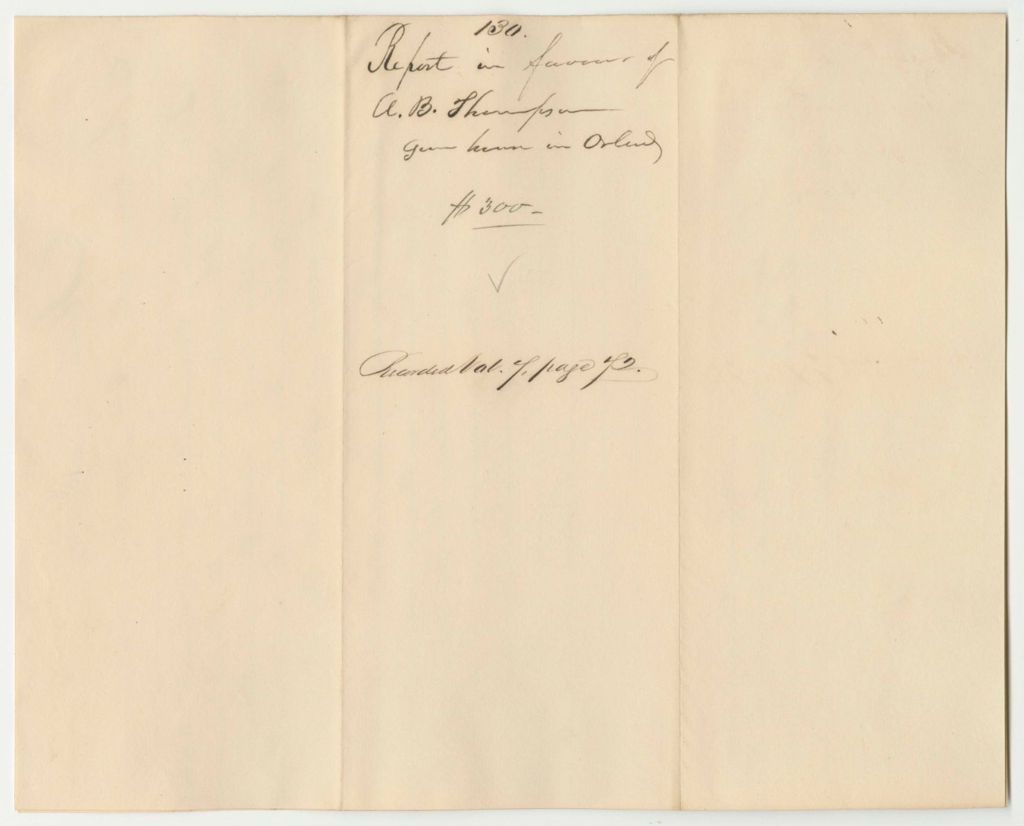 130.
Report in favour of
A. B. Thompson
gun house in Orland
$300-
Recorded Vol. 7, page 72.